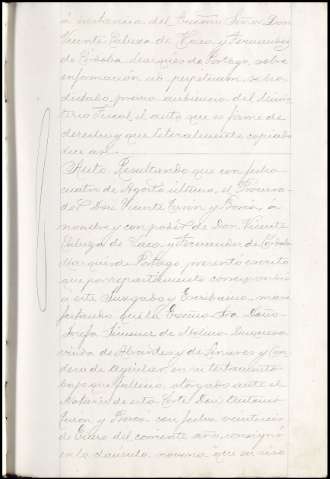 á instancia del Excmo Señor Don
Vicente Cabeza de Vaca y Fernandez
de Córdoba Marqués de Portago, sobre
información ad perpetuam, se ha
dictado, previa audiencia del Minis-
terio Fiscal, el auto que en forma de
derecho y que literalmente copiado
dice así.
Auto. Resultando que con fecha
cuatro de Agosto último, el Procura-
dor Don Vicente Turón y Boscá, á
nombre y con poder de Don Vicente
Cabeza de Vaca y Fernandez de Córdoba
Marqués de Portago, presentó escrito
que por repartimiento correspondió
á este Juzgado y Escribanía, mani-
festando que la Excma Sra Doña
Josefa Jimenez de Molina Duquesa
viuda de Abrantes y de Linares y Con-
desa de Aguilar en su testamento
bajo que falleció, otorgado ante el
Notario de esta Corte Don Antonio
Turón y Boscá con fecha veintiseis
de Enero del corriente año, consignó
en la cláusula novena que su viso